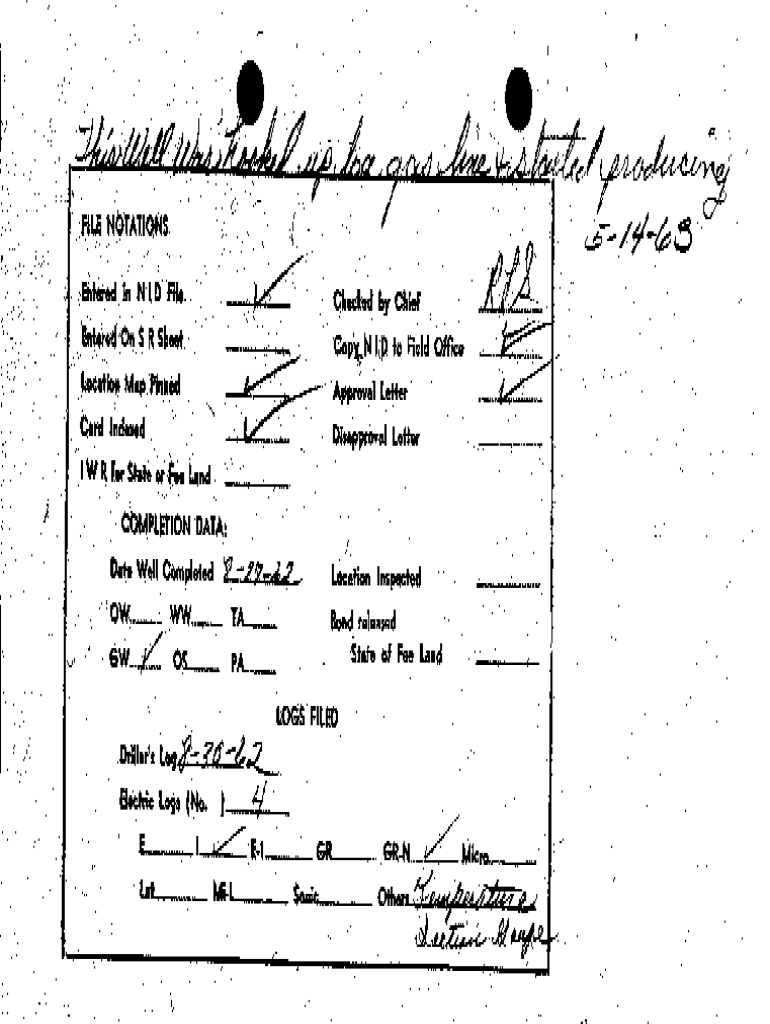 This Well Was Hooked up to a gas line & started producing
5-14-63
FILE NOTATIONS
Entered in N I D File
Checked by Chief
Entered On S R Sheet
Copy N I D to Field Office
Location Map Pinned
Approval Letter
Card Indexed
Disapproval Letter
I W R for State or Fee Land
COMPLETION DATA:
Date Well Completed 8-27-62
Location Inspected
OW WW TA
Bond released
GW OS PA
State of Fee Land
LOGS FILED
Driller's Log 8-30-62
Electric Logs (No. ) 4
E I E-I GR GR-N Micro
Lat Mi-L Sonic Others Temperature